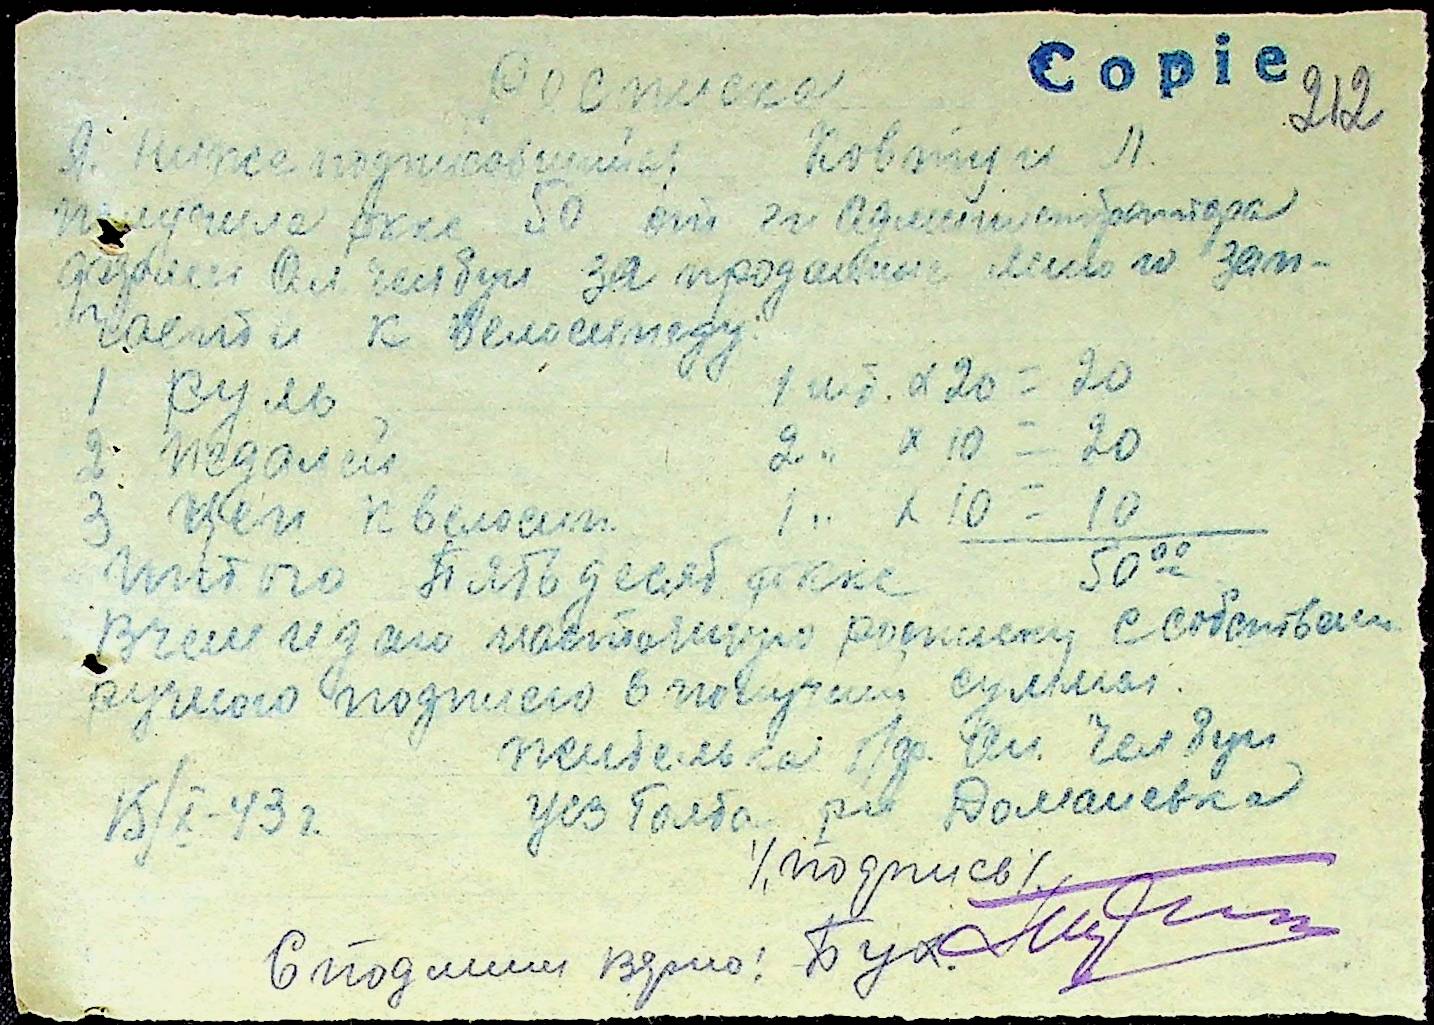 Copie
212
Росписка
Я. Ниже подписовшийся Ковтун Л.
получила ркке 50 от г-и Администратора
фермы Ал Челбун за проданные мною зап-
части к велосипеду.
1 Руль 1 шт. х 20 = 20
2 Педалей 2 " х 10 = 20
3 Цеп к велосип. 1 " х 10 = 10
Итого Пятьдесят ркке 50 00
В чем и даю настоящую росписку с собственн
ручною подписю в получении суммы.
Жителька Ал. Челбун
уез Голта р-н Доманевка
15/X-43 г.
/подпись/.
С подлиним верно! Бух.